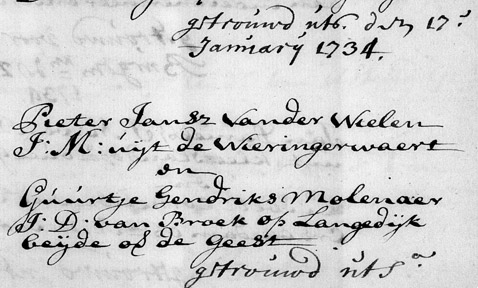 getrouwd uts. den 17.
January 1734.
Pieter Jansz Vander Wielen
J: M: uijt de Wieringerwaert
en
Guurtje Hendriks Molenaer
J: D: van Broek op Langedijk
beijde op de Geest
getrouwd uts.